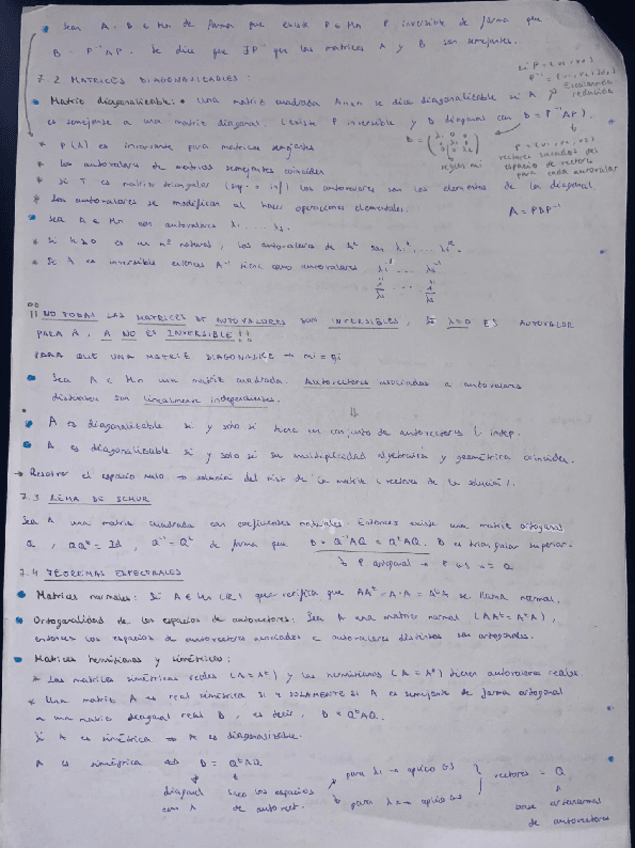 Sean A, B ∈ Mn de forma que existe P ∈ Mn P inversible de forma que
B = P⁻¹AP. Se dice que las matrices A y B son semejantes.
7.2 MATRICES DIAGONALIZABLES:
Matriz diagonalizable: Una matriz cuadrada Anxn se dice diagonalizable si A
es semejante a una matriz diagonal. (existe P inversible y D diagonal con D = P⁻¹AP).
* P(λ) es invariante para matrices semejantes
vectores sacados del
espacio de vectores
para cada autovalor
* Los autovalores de matrices semejantes coinciden
* Si T es matriz triangular (sup. o inf) los autovalores son los elementos de la diagonal.
* Los autovalores se modifican al hacer operaciones elementales.
A = PDP⁻¹
Sea A ∈ Mn con autovalores λ1, ... λs.
* Si k≥0 es un nº natural, los autovalores de Aᵏ son λ1ᵏ, ... λsᵏ.
* Si A es inversible entonces A⁻¹ tiene como autovalores
!! NO TODAS LAS MATRICES DE AUTOVALORES SON INVERSIBLES, SI λ=0 ES AUTOVALOR
PARA A, A NO ES INVERSIBLE!!
PARA QUE UNA MATRIZ DIAGONALICE → mi = gi
Sea A ∈ Mn una matriz cuadrada. Autovectores asociados a autovalores
distintos son linealmente independientes.
⇓
A es diagonalizable si y solo si tiene un conjunto de autovectores L. indep.
A es diagonalizable si y solo si su multiplicidad algebraica y geométrica coinciden.
→ Resolver el espacio nulo → solución del sist de la matriz (vectores de la solución).
7.3 LEMA DE SCHUR
Sea A una matriz cuadrada con coeficientes. Entonces existe una matriz ortogonal
Q, QQᵗ = Id, Q⁻¹ = Qᵗ de forma que D = Q⁻¹AQ = QᵗAQ. D es triangular superior.
7.4 TEOREMAS ESPECTRALES
Matrices normales: Si A ∈ Mn (R) que verifica que AAᵗ = AᵗA se llama normal.
Ortogonalidad de los espacios de autovectores: Sea A una matriz normal (AAᵗ = AᵗA),
entonces los espacios de autovectores asociados a autovalores distintos son ortogonales.
Matrices hermitianas y simétricas:
* Las matrices simétricas reales (A = Aᵗ) y las hermitianas tienen autovalores reales.
* Una matriz A es real simétrica SI Y SOLAMENTE SI A es semejante de forma ortogonal
a una matriz diagonal real D, es decir, D = QᵗAQ.
Si A es simétrica → A es diagonalizable.
A es simétrica ⇔ D = QᵗAQ
para λ1 → aplico GS
para λ2 → aplico GS
} vectores = Q
diagonal
con λ
saco los espacios
de autovect.
base ortonormal
de autovectores